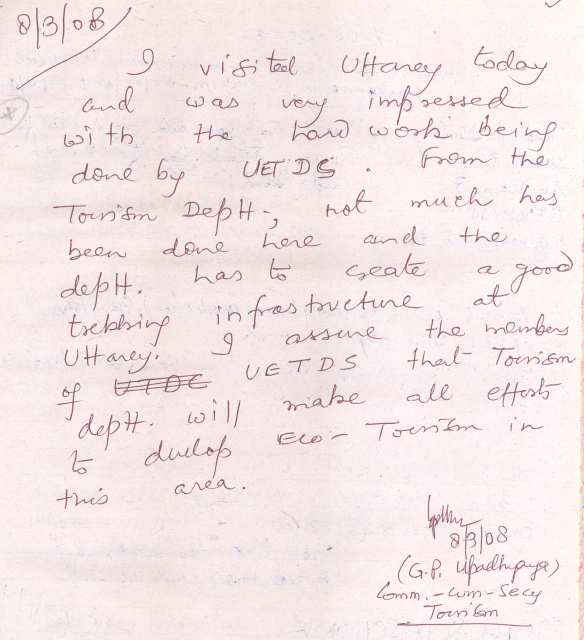 8/3/08
I visited Uttarey today
and was very impressed
with the hard work being
done by UETDS. From the
Tourism Deptt., not much has
been done here and the
deptt. has to create a good
trekking infrastructure at
Uttarey. I assure the members
of UTDC UETDS that Tourism
deptt. will make all efforts
to develop Eco-Tourism in
this area.
8/3/08
(G.P. Upadhyaya)
Comm.-cum-Secy
Tourism